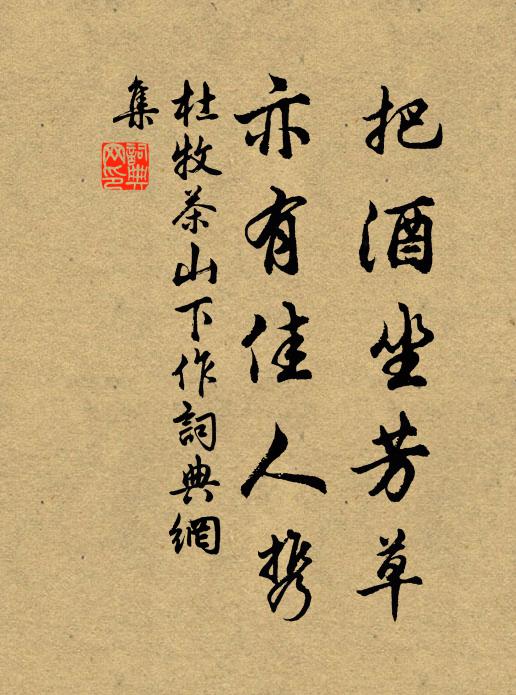 把酒坐芳草
亦有佳人携
杜牧茶山下作詞典網
集
詞典
网印